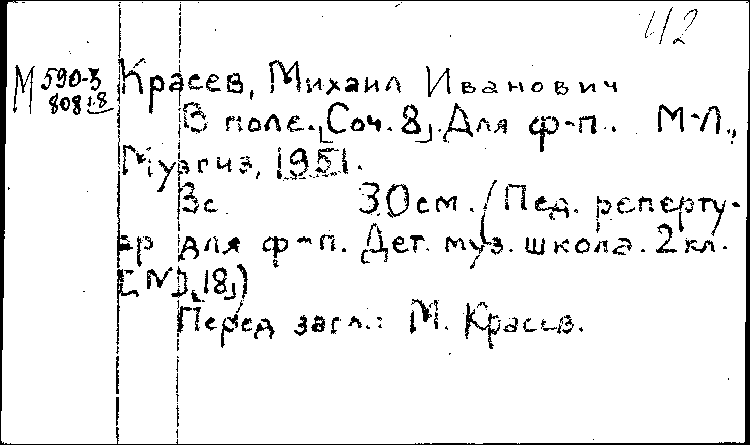 42
М 590-3
808 1-8
Красев, Михаил Иванович
В поле. Соч. 8. Для ф-п. М-Л.,
Музгиз, 1951.
3с. 30см. (Пед. реперту-
ар для ф-п. Дет. муз. школа. 2кл.
[N] 18)
Перед загл.: М. Красев.